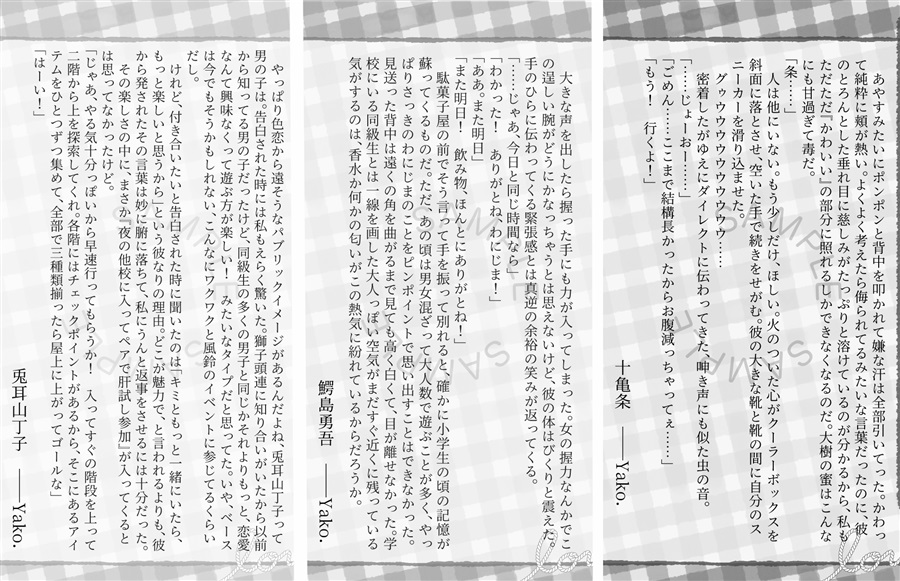 あやすみたいにポンポンと背中を叩かれて嫌な汗は全部引いてった。かわっ
て純粋に頬が熱い。よくよく考えたら侮られてるみたいな言葉だったのに、彼
のとろんとした垂れ目に慈しみがたっぷりと溶けているのが分かるから、私も
ただただ『かわいい』の部分に照れるしかできなくなるのだ。大樹の蜜はこんな
にも甘過ぎて毒だ。
「条……」
人は他にいない。もう少しだけ、ほしい。火のついた心がクーラーボックスを
斜面に落とさせ、空いた手で続きをせがむ。彼の大きな靴と靴の間に自分のス
ニーカーを滑り込ませた。
グゥウウウウウウウウウ……
密着したがゆえにダイレクトに伝わってきた、呻き声にも似た虫の音。
「……じょーおー……」
「ごめん……ここまで結構長かったからお腹減っちゃってぇ……」
「もう！　行くよ！」
十亀条　――Yako.
大きな声を出したら握った手にも力が入ってしまった。女の握力なんかでこ
の逞しい腕がどうにかなっちゃうとは思えないけど、彼の体はびくりと震えた。
手のひらに伝わってくる緊張感とは真逆の余裕の笑みが返ってくる。
「……じゃあ、今日と同じ時間なら」
「わかった！　ありがとね、わにじま！」
「ああ。また明日」
「また明日！　飲み物、ほんとにありがとね！」
駄菓子屋の前でそう言って手を振って別れると、確かに小学生の頃の記憶が
蘇ってくるものだ。ただ、あの頃は男女混ざって大人数で遊ぶことが多く、やっ
ぱりさっきのわにじまのことをピンポイントで思い出すことはできなかった。
見送った背中は遠くの角を曲がるまで見ても高く白くて、目が離せなかった。学
校にいる同級生とは一線を画した大人っぽい空気がまだすぐ近くに残っている
気がするのは、香水か何かの匂いがこの熱気に紛れているからだろうか。
鰐島勇吾　――Yako.
やっぱり色恋から遠そうなパブリックイメージがあるんだよね、兎耳山丁子って
男の子は。告白された時には私もえらく驚いた。獅子頭連に知り合いがいたから以前
から知ってる男の子だったけど、同級生の多くの男子と同じかそれよりもっと、恋愛
なんて興味なくって遊ぶ方が楽しい！　みたいなタイプだと思ってた。いや、ベース
は今でもそうかもしれない、こんなにワクワクと風鈴のイベントに参じてるくらい
だし。
けれど、付き合いたいと告白された時に聞いたのは「キミともっと一緒にいたら、
もっと楽しいと思うから」という彼なりの理由。どこが魅力で、と言われるよりも、彼
から発されたその言葉は妙に腑に落ちて、私にうんと返事をさせるには十分だった。
その楽しさの中に、まさか『夜の他校に入ってペアで肝試し参加』が入ってくると
は思ってなかったけど。
「じゃあ、やる気十分っぽいから早速行ってもらうか！　入ってすぐの階段を上って
二階から上を探索してくれ。各階にはチェックポイントがあるから、そこにあるアイ
テムをひとつずつ集めて、全部で三種類揃ったら屋上に上がってゴールな」
「はーい！」
兎耳山丁子　――Yako.
SAMPLE
SAMPLE
SAMPLE